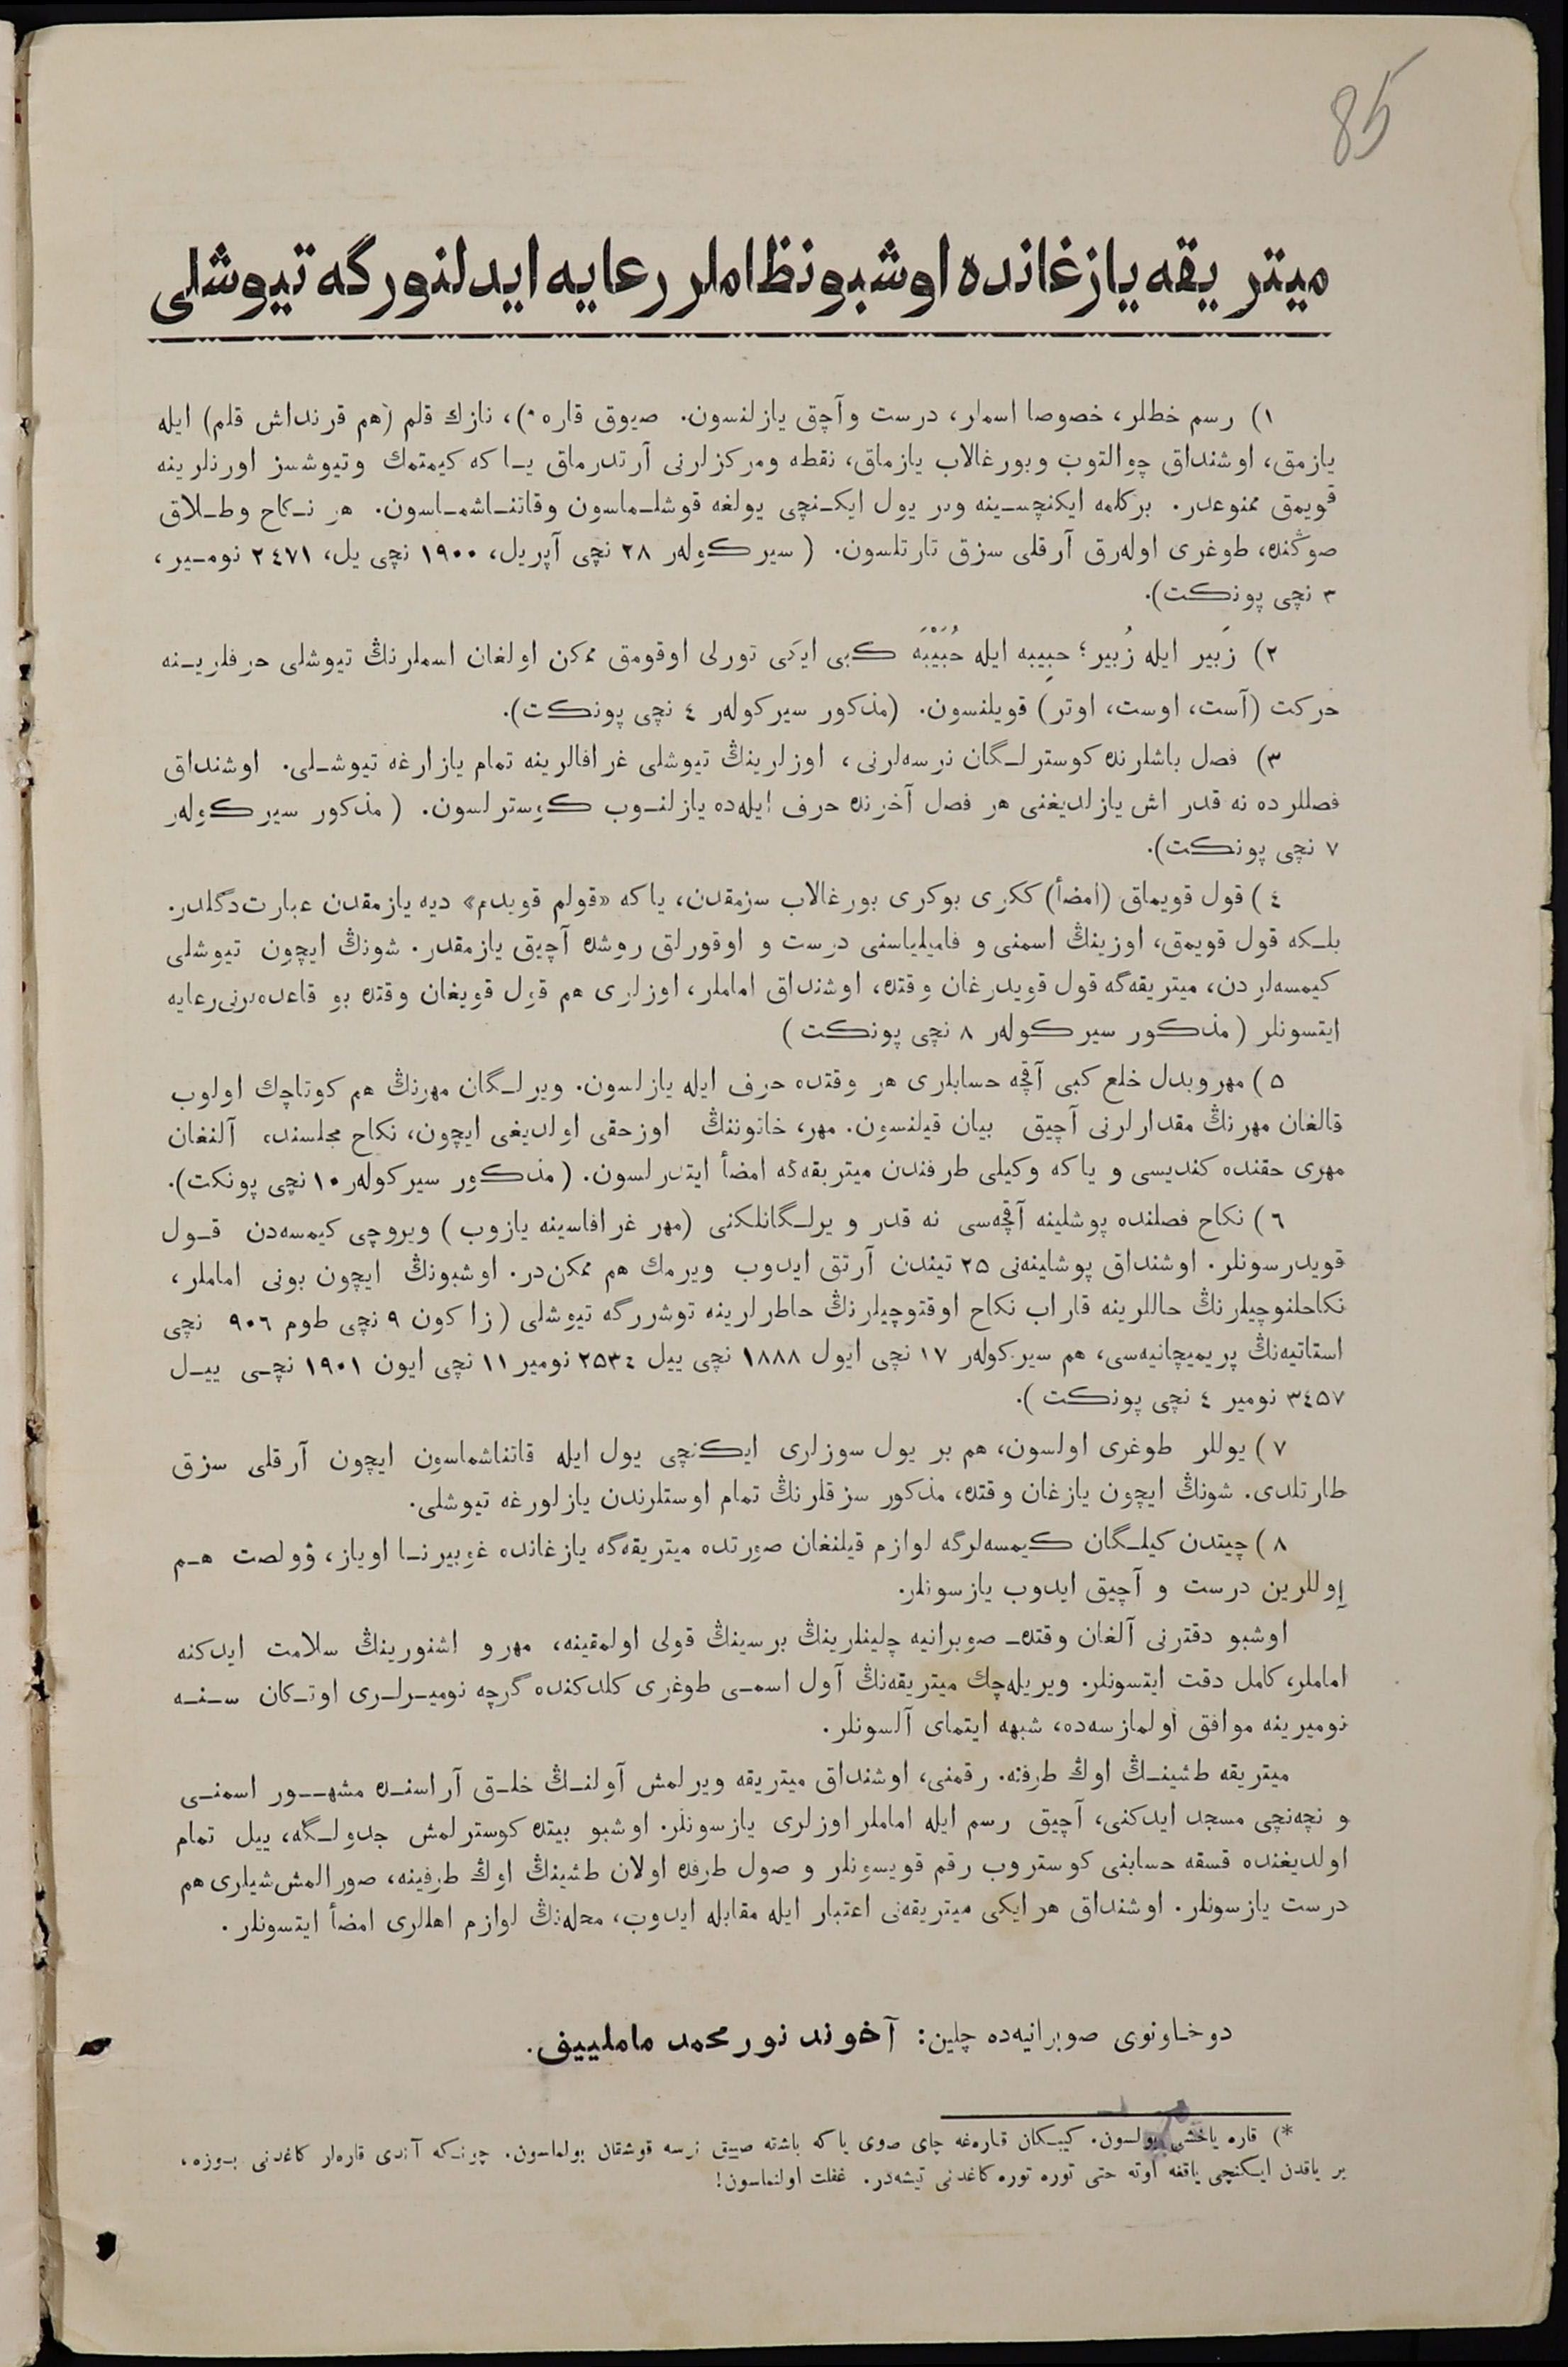 85
میتریقه یازغانده اوشبو نظاملر رعایه ایدلنورگه تیوشلی
۱) رسم خطلر، خصوصا اسملر، درست وآچق یازلنسون. صیوق قاره *)، نازك قلم (هم قرنداش قلم) ایله
یازمق، اوشنداق چوالتوب وبورغالاب یازماق، نقطه ومرکزلرنی آرتدرماق یـا که کیمتمك وتیوشسز اورنلرینه
قویمق ممنوعدر. برکلمه ایکنچـینه وبر یول ایکـنچی یولغه قوشلـماسون وقاتنـاشمـاسون. هر نـکاح وطـلاق
صوڭنده، طوغری اولەرق آرقلی سزق تارتلسون. (سیرکولەر ۲۸ نچی آپریل، ۱۹۰۰ نچی یل، ۲٤۷۱ نومـیر،
۳ نچی پونکت).
۲) زَبیر ایله زُبیر؛ حبِیبه ایله حُبَیْبَه کبی ایکی تورلی اوقومق ممکن اولغان اسملرنڭ تیوشلی حرفلریـنه
حرکت (آست، اوست، اوتر) قویلنسون. (مذکور سیرکولەر ٤ نچی پونکت).
۳) فصل باشلرنده کوسترلـگان نرسەلرنی، اوزلرینڭ تیوشلی غرافالرینه تمام یازارغه تیوشـلی. اوشنداق
فصللرده نه قدر اش یازلدیغنی هر فصل آخرنده حرف ایلەده یازلنـوب کوسترلسون. (مذکور سیرکولەر
۷ نچی پونکت).
٤) قول قویماق (امضأ) ککری بوکری بورغالاب سزمقدن، یاکه «قولم قویدم» دیه یازمقدن عبارت دگلدر.
بلـکه قول قویمق، اوزینڭ اسمنی و فامیلیاسنی درست و اوقورلق روشده آچیق یازمقدر. شونڭ ایچون تیوشلی
کیمسەلردن، میتریقەگه قول قویدرغان وقتده، اوشنداق اماملر، اوزلری هم قول قویغان وقتده بو قاعدەلرنی رعایه
ایتسونلر (مذکور سیرکولەر ۸ نچی پونکت)
۵) مهر وبدل خلع کبی آقچه حسابلری هر وقتده حرف ایله یازلسون. ویرلـگان مهرنڭ هم کوتاچك اولوب
قالغان مهرنڭ مقدارلرنی آچیق بیان قیلنسون. مهر، خاتوننڭ اوزحقی اولدیغی ایچون، نکاح مجلسنده آلنغان
مهری حقنده کندیسی و یاکه وکیلی طرفندن میتریقەگه امضأ ایتدرلسون. (مذکور سیرکولەر ۱۰ نچی پونکت).
٦) نکاح فصلنده پوشلینه آقچەسی نه قدر ویرلـگانلکنی (مهر غرافاسینه یازوب) ویروچی کیمسەدن قـول
قویدرسونلر. اوشنداق پوشلینەنی ۲۵ تیندن آرتق ایدوب ویرمك هم ممکن‌در. اوشبونڭ ایچون بونی اماملر،
نکاحلنوچیلرنڭ حاللرینه قاراب نکاح اوقتوچیلرنڭ خاطرلرینه توشررگه تیوشلی (زاکون ۹ نچی طوم ۹۰٦ نچی
استاتیەنڭ پریمیچانیەسی، هم سیرکولەر ۱۷ نچی ایول ۱۸۸۸ نچی ییل ۲۵۳٤ نومیر ۱۱ نچی ایون ۱۹۰۱ نچـی ییـل
۳٤۵۷ نومیر ٤ نچی پونکت).
۷) یوللر طوغری اولسون، هم بر یول سوزلری ایکنچی یول ایله قاتناشماسون ایچون آرقلی سزق
طارتلدی. شونڭ ایچون یازغان وقتده، مذکور سزقلرنڭ تمام اوستلرندن یازلورغه تیوشلی.
۸) چیتدن کیلـگان کیمسەلرگه لوازم قیلنغان صورتده میتریقەگه یازغانده غوبیرنـا اویاز، وولصت هـم
اوللرین درست و آچیق ایدوب یازسونلر.
اوشبو دفترنی آلغان وقتده صوبرانیه چلینلرینڭ برسینڭ قولی اولمقینه، مهر و اشنورینڭ سلامت ایدکنه
اماملر، کامل دقت ایتسونلر. ویریلەچك میتریقەنڭ آول اسمـی طوغری کلدکنده گرچه نومیـرلـری اوتـکان سـنـه
نومیرینه موافق اولمازسەده، شبهه ایتمای آلسونلر.
میتریقه طشینـڭ اوڭ طرفنه. رقمنی، اوشنداق میتریقه ویرلمش آولنـڭ خلـق آراسنـده مشهـور اسمنـی
و نچەنچی مسجد ایدکنی، آچیق رسم ایله اماملر اوزلری یازسونلر. اوشبو بیتده کوسترلمش جدولـگه، ییل تمام
اولدیغنده قسقه حسابنی کوستروب رقم قویسونلر و صول طرفده اولان طشینڭ اوڭ طرفینه، صورالمش شیلری هم
درست یازسونلر. اوشنداق هر ایکی میتریقەنی اعتبار ایله مقابله ایدوب، محلەنڭ لوازم اهللری امضأ ایتسونلر.
دوخاونوی صوبرانیەده چلین: آخوند نورمحمد ماملییف.
*) قاره یاخشی بولسون. کیبکان قارەغه چای صوی یاکه باشته صییق نرسه قوشقان بولماسون. چونـکه آندی قارەلر کاغدنی بـوزه،
بر یاقدن ایـکنچی یاقغه اوته حتی توره توره کاغدنی تیشەدر. غفلت اولنماسون!